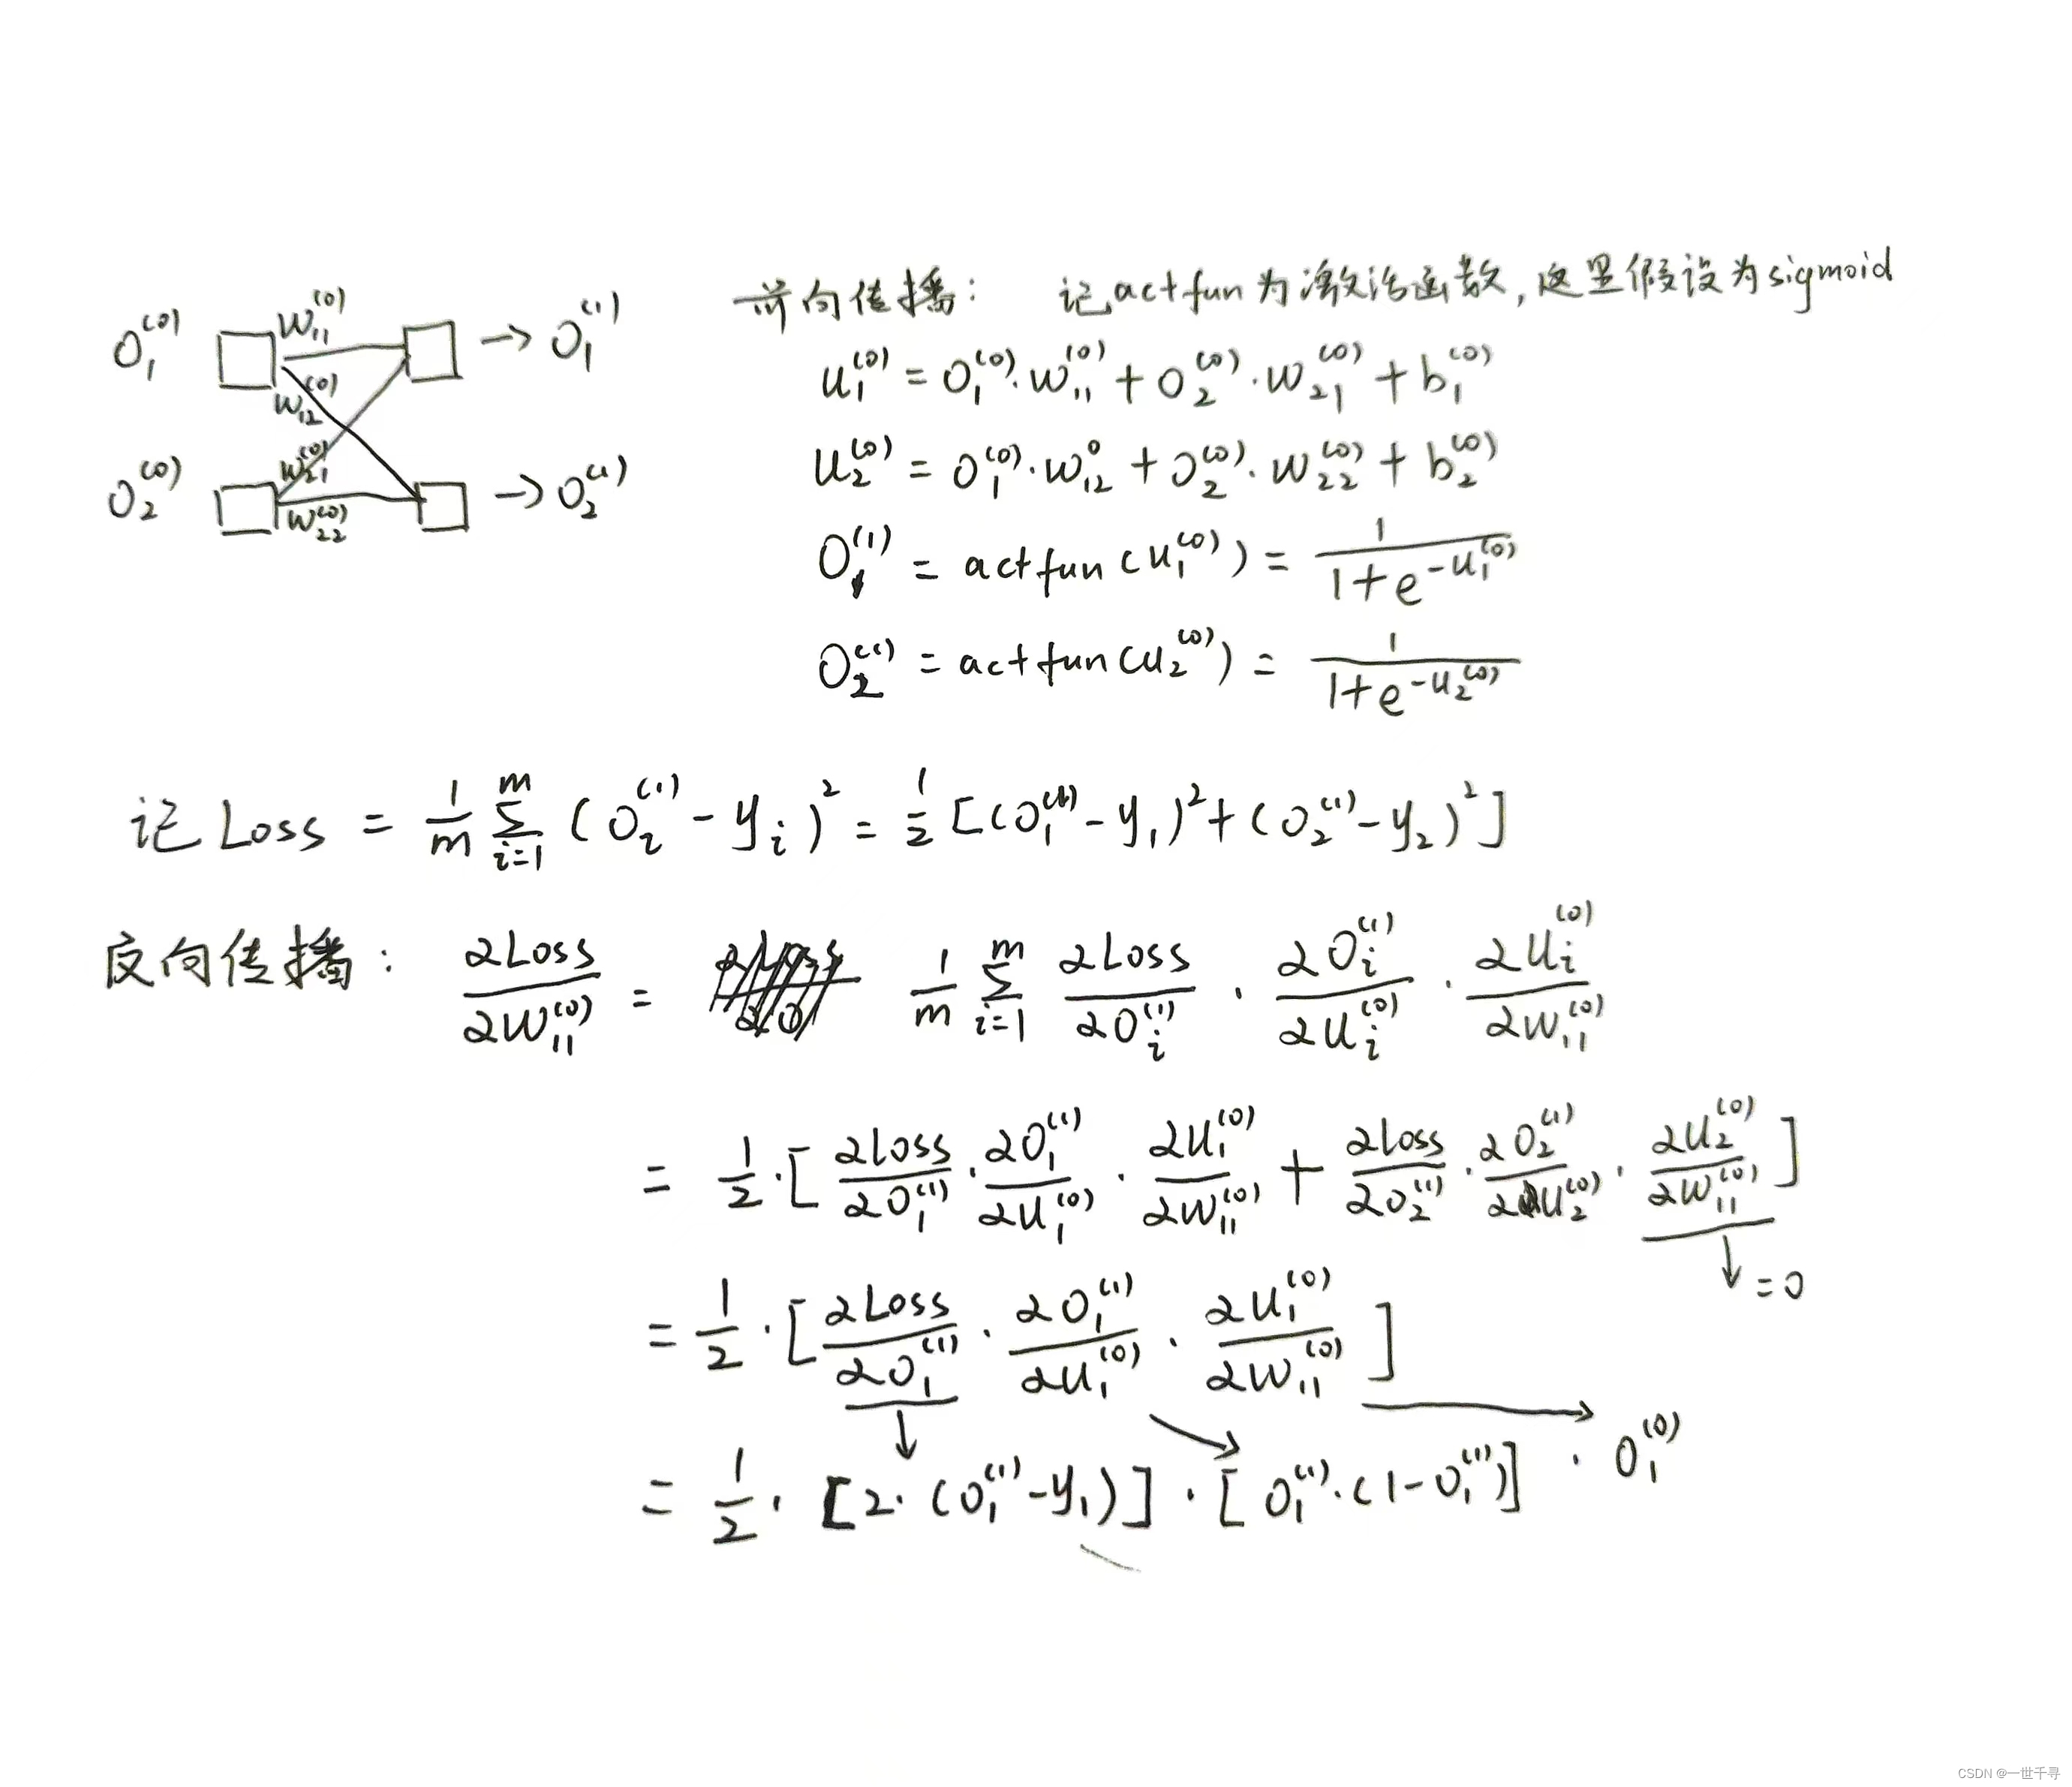 O₁⁽⁰⁾ W₁₁⁽⁰⁾ → O₁⁽¹⁾
W₁₂⁽⁰⁾
W₂₁⁽⁰⁾
O₂⁽⁰⁾ W₂₂⁽⁰⁾ → O₂⁽¹⁾
前向传播： 记actfun为激活函数，这里假设为sigmoid
u₁⁽⁰⁾ = O₁⁽⁰⁾·W₁₁⁽⁰⁾ + O₂⁽⁰⁾·W₂₁⁽⁰⁾ + b₁⁽⁰⁾
u₂⁽⁰⁾ = O₁⁽⁰⁾·W₁₂⁰ + O₂⁽⁰⁾·W₂₂⁽⁰⁾ + b₂⁽⁰⁾
O₁⁽¹⁾ = actfun(u₁⁽⁰⁾) = 1/(1+e^(-u₁⁽⁰⁾))
O₂⁽¹⁾ = actfun(u₂⁽⁰⁾) = 1/(1+e^(-u₂⁽⁰⁾))
记 Loss = 1/m Σ_{i=1}^{m} (O_i⁽¹⁾ - y_i)² = 1/2 [(O₁⁽¹⁾ - y₁)² + (O₂⁽¹⁾ - y₂)²]
反向传播： ∂Loss/∂W₁₁⁽⁰⁾ = 1/m Σ_{i=1}^{m} ∂Loss/∂O_i⁽¹⁾ · ∂O_i⁽¹⁾/∂u_i⁽⁰⁾ · ∂u_i⁽⁰⁾/∂W₁₁⁽⁰⁾
= 1/2 · [∂Loss/∂O₁⁽¹⁾ · ∂O₁⁽¹⁾/∂u₁⁽⁰⁾ · ∂u₁⁽⁰⁾/∂W₁₁⁽⁰⁾ + ∂Loss/∂O₂⁽¹⁾ · ∂O₂⁽¹⁾/∂u₂⁽⁰⁾ · ∂u₂⁽⁰⁾/∂W₁₁⁽⁰⁾]
↓ = 0
= 1/2 · [∂Loss/∂O₁⁽¹⁾ · ∂O₁⁽¹⁾/∂u₁⁽⁰⁾ · ∂u₁⁽⁰⁾/∂W₁₁⁽⁰⁾]
= 1/2 · [2·(O₁⁽¹⁾ - y₁)] · [O₁⁽¹⁾·(1 - O₁⁽¹⁾)] · O₁⁽⁰⁾
CSDN @一世千寻